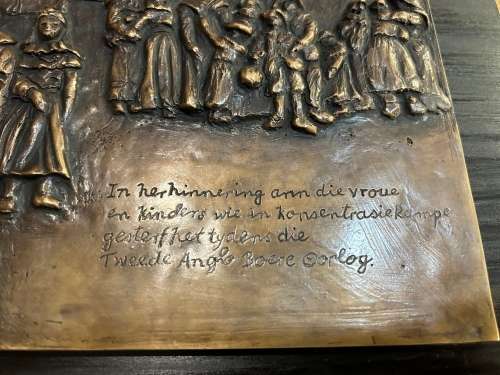 In herhinnering ann die vroue
en kinders wie in konsentrasiekampe
gesterf het tydens die
Tweede Anglo Boere Oorlog.